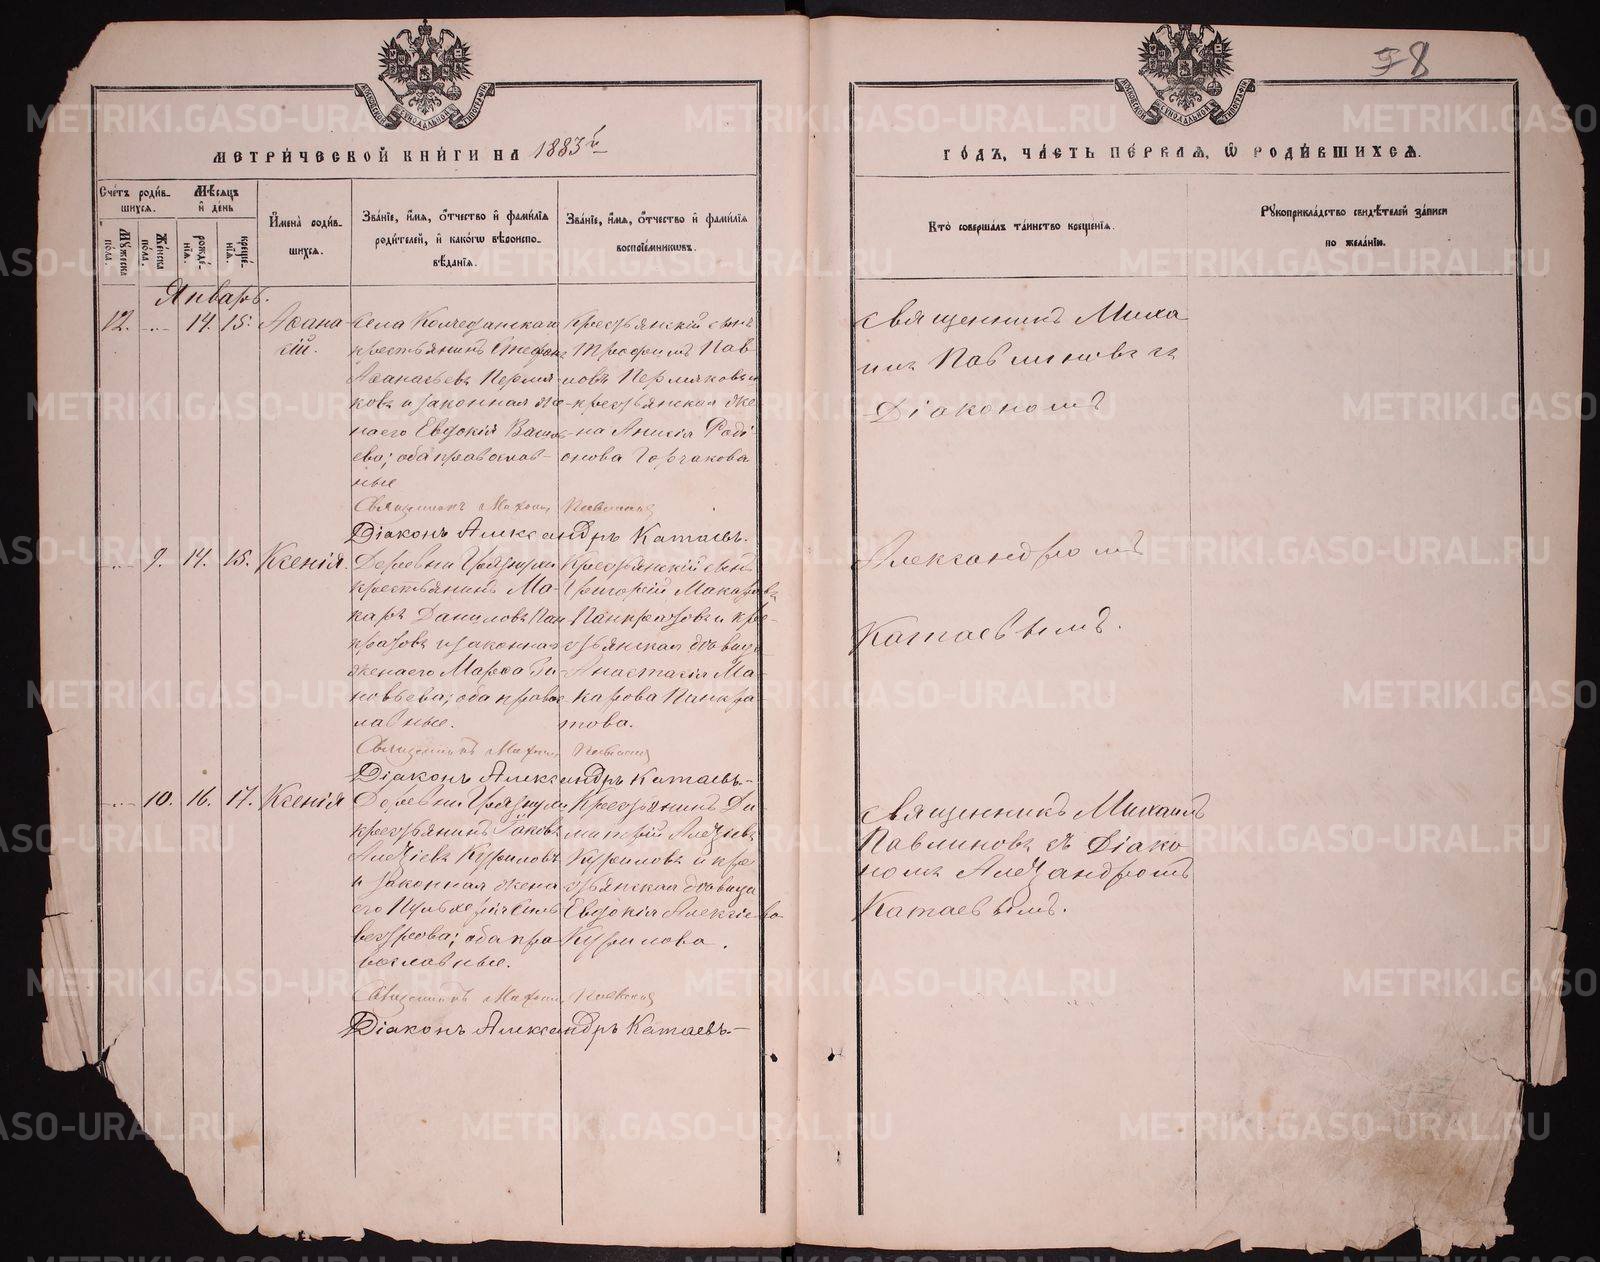 78
МЕТРИЧЕСКОЙ КНИГИ НА 1883й
ГОДЪ, ЧАСТЬ ПЕРВАЯ, Ѡ РОДИВШИХСЯ.
Счетъ родив-
шихся.
Мужеска пола.
Женска пола.
Мѣсяцъ
и день
рожде-
нія.
креще-
нія.
Имена родив-
шихся.
Званіе, имя, отчество и фамилія
родителей, и какогѡ вѣроиспо-
вѣданія.
Званіе, имя, отчество и фамилія
воспріемниковъ.
Кто совершалъ таинство крещенія.
Рукоприкладство свидѣтелей записи
по желанію.
Январь.
12. 14. 15. Аѳана-
сій.
Села Колчеданскаго
крестьянинъ Стефанъ
Аѳанасьевъ Пермя-
ковъ и законная же-
на его Евдокія Василь-
ева; оба православ-
ные
крестьянскій сынъ
Трофимъ Пав-
ловъ Пермяковъ и
крестьянская же-
на Анисія Роді-
онова Горчакова
Священникъ Михаилъ Павлиновъ
Діаконъ Александръ Катаевъ.
Священникъ Миха
илъ Павлиновъ съ
Діакономъ
Александромъ
Катаевымъ.
9. 14. 15. Ксенія.
Деревни
крестьянинъ Ма-
каръ Даниловъ Пан-
кратовъ и законная
жена его Марѳа Зи-
новьева; оба правос-
лавные.
Крестьянскій сынъ
Григорій Макаровъ
Панкратовъ и кре-
стьянская дѣвица
Анастасія Ма-
карова Панкра-
това.
Священникъ Михаилъ Павлиновъ
Діаконъ Александръ Катаевъ
10. 16. 17. Ксенія
Деревни
крестьянинъ Іаковъ
Алексіевъ Куриловъ
и законная жена
его Пульхерія Силь-
вестрова; оба пра-
вославные.
Крестьянинъ Ди-
митрій Алексіевъ
Куриловъ и кре-
стьянская дѣвица
Евдокія Алексіева
Курилова.
Священникъ Михаилъ Павлиновъ
Діаконъ Александръ Катаевъ
Священникъ Михаилъ
Павлиновъ съ Діако
номъ Александромъ
Катаевымъ.
METRIKI.GASO-URAL.RU